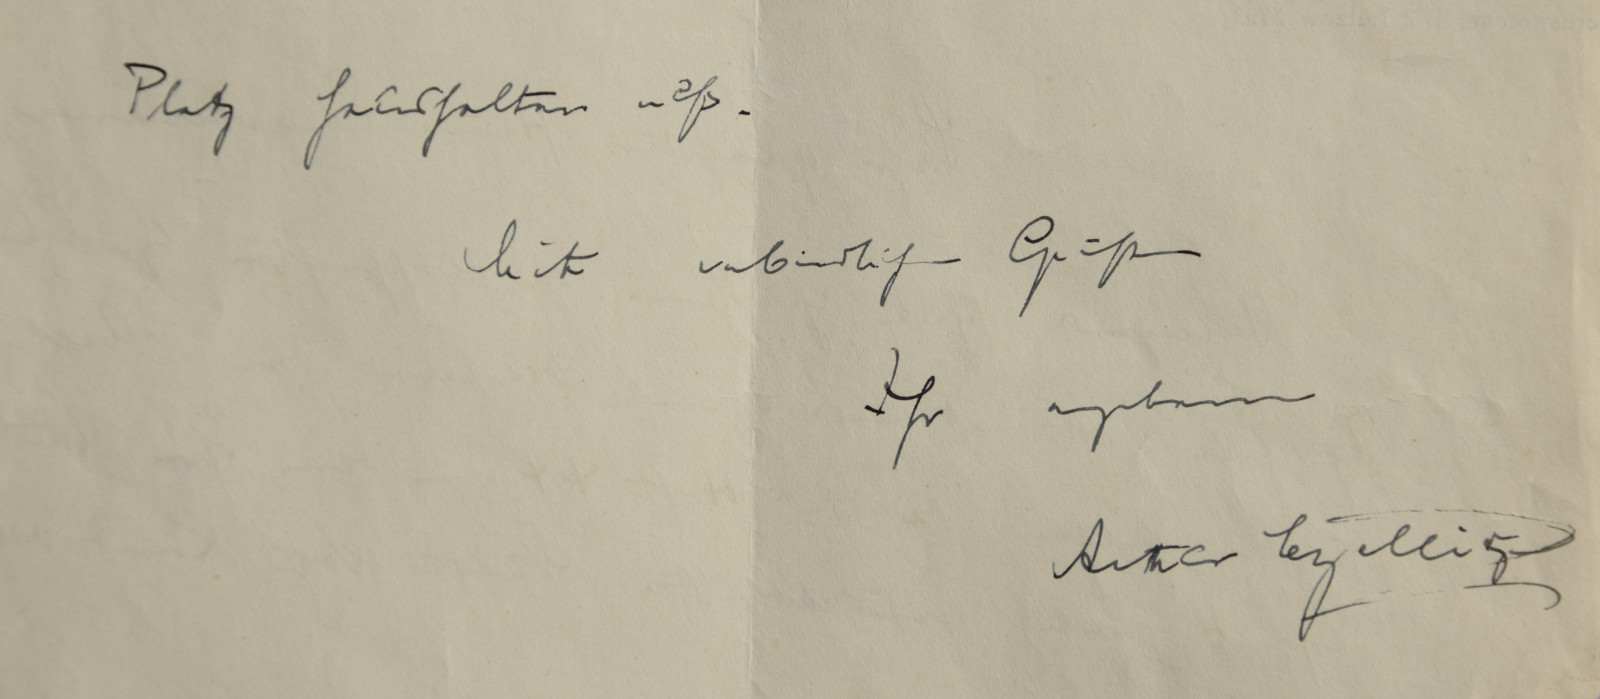 Platz freihalten
Mit verbindlichen Grüßen
Ihr ergebener
Arthur Czellitzer